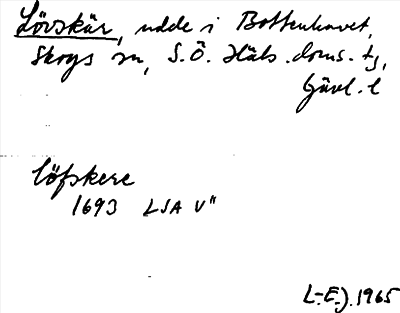 Lövskär, udde i Bottenhavet,
Skogs sn, S.Ö. Häls. doms. tg,
Gävl. l
löfskere
1693 LSA V"
L-E.J. 1965